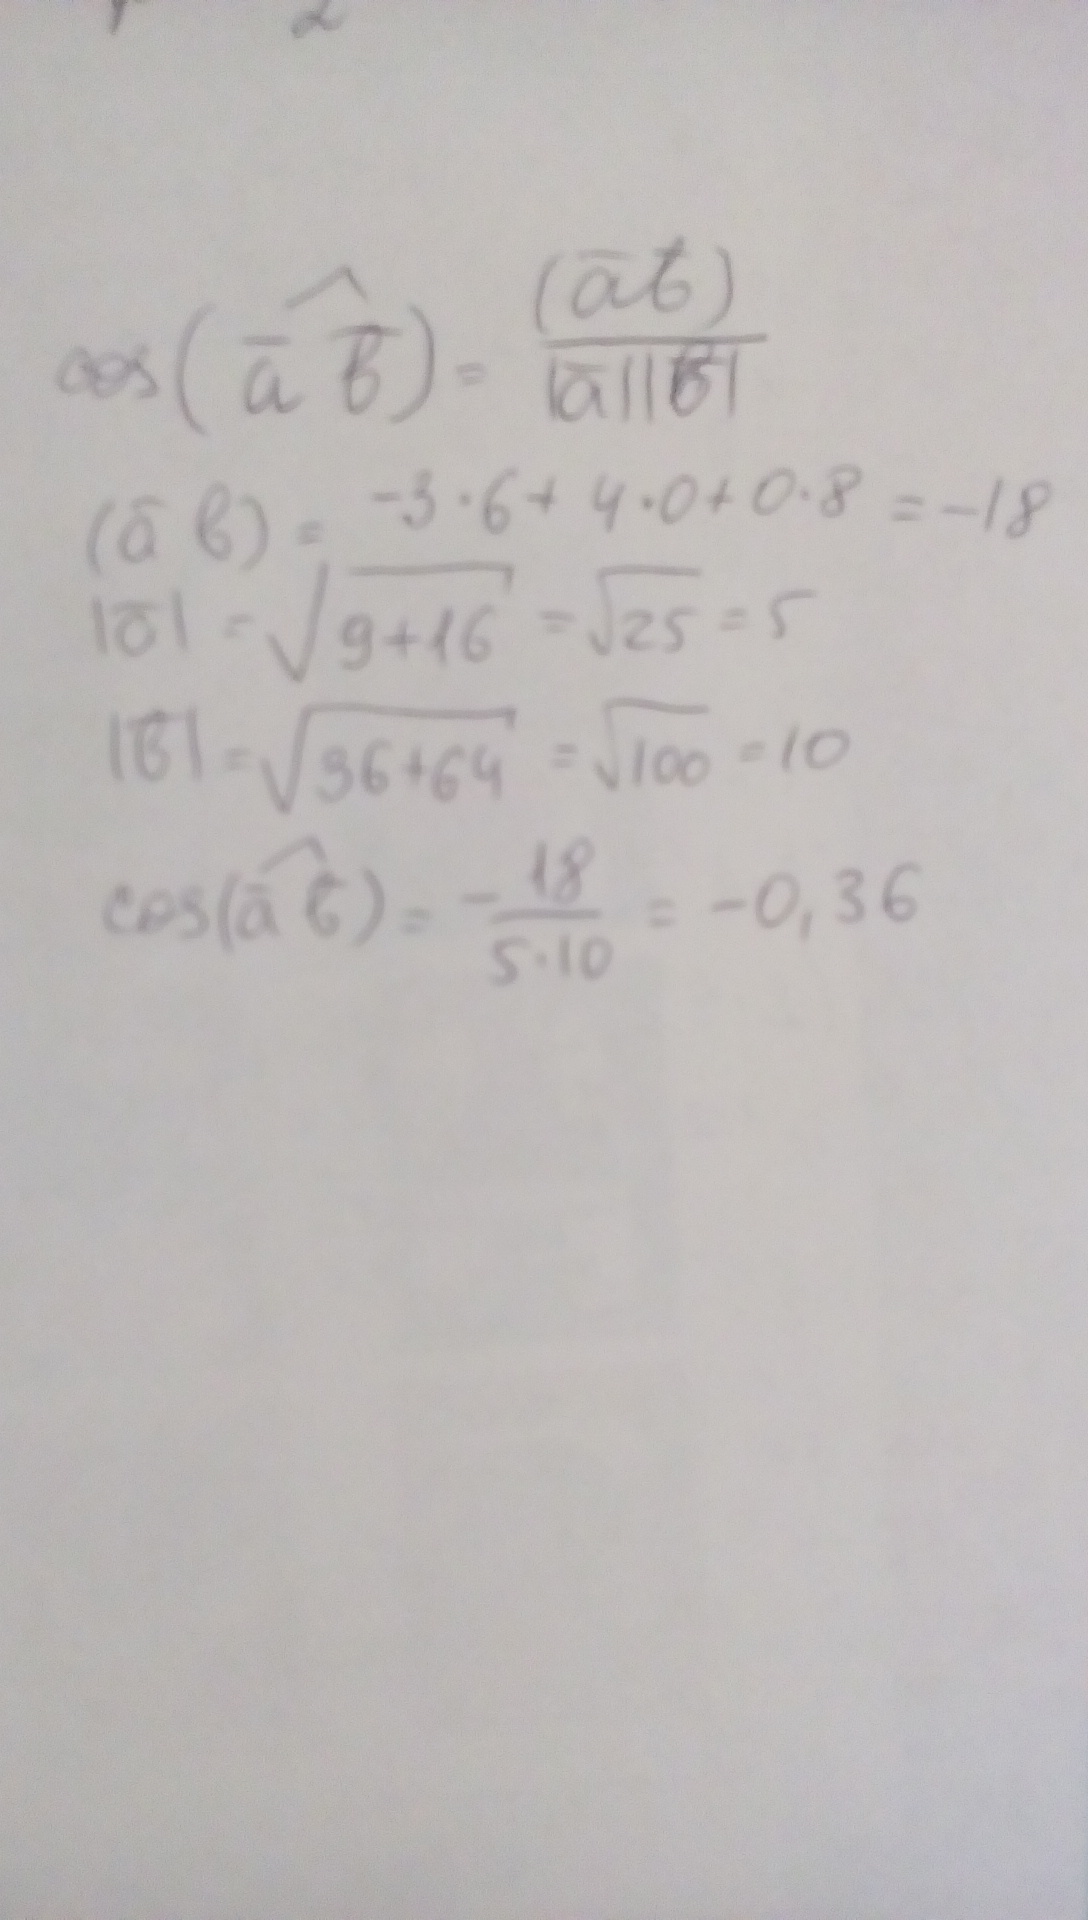 cos(a̅ b̅) = (a̅b̅) / |a̅||b̅|
(a̅ b) = -3·6+ 4·0+0·8 = -18
|a̅| = √9+16 = √25 = 5
|b̅| = √36+64 = √100 = 10
cos(a̅ b̅) = - 18 / 5·10 = -0,36